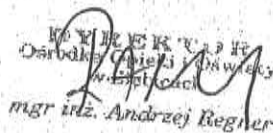 DYREKTOR
Ośrodka Opieki i Oświaty
mgr inż. Andrzej Regner